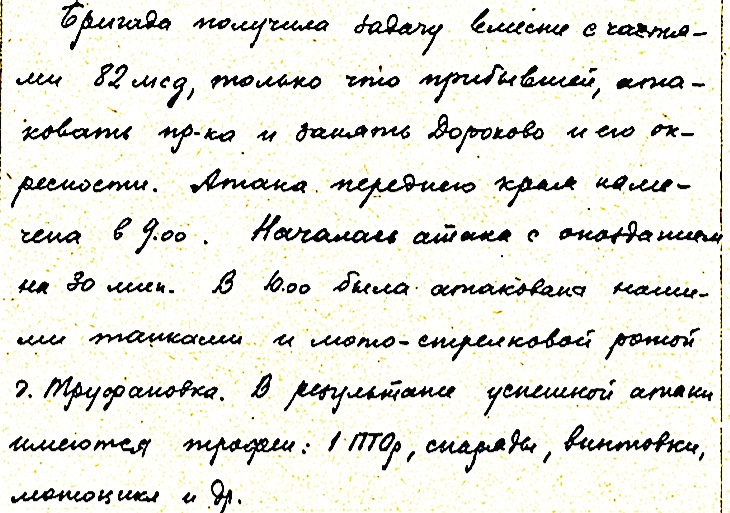 Бригада получила задачу вместе с частя-
ми 82 мсд, только что прибывшей, ата-
ковать пр-ка и занять Дорохово и его ок-
ресности. Атака переднего края наме-
чена в 9.00. Началась атака с опозданием
на 30 мин. В 10.00 была атакована наши-
ми танками и мото-стрелковой ротой
д. Труфановка. В результате успешной атаки
имеются трофеи: 1 ПТОр, снаряды, винтовки,
мотоцикл и др.